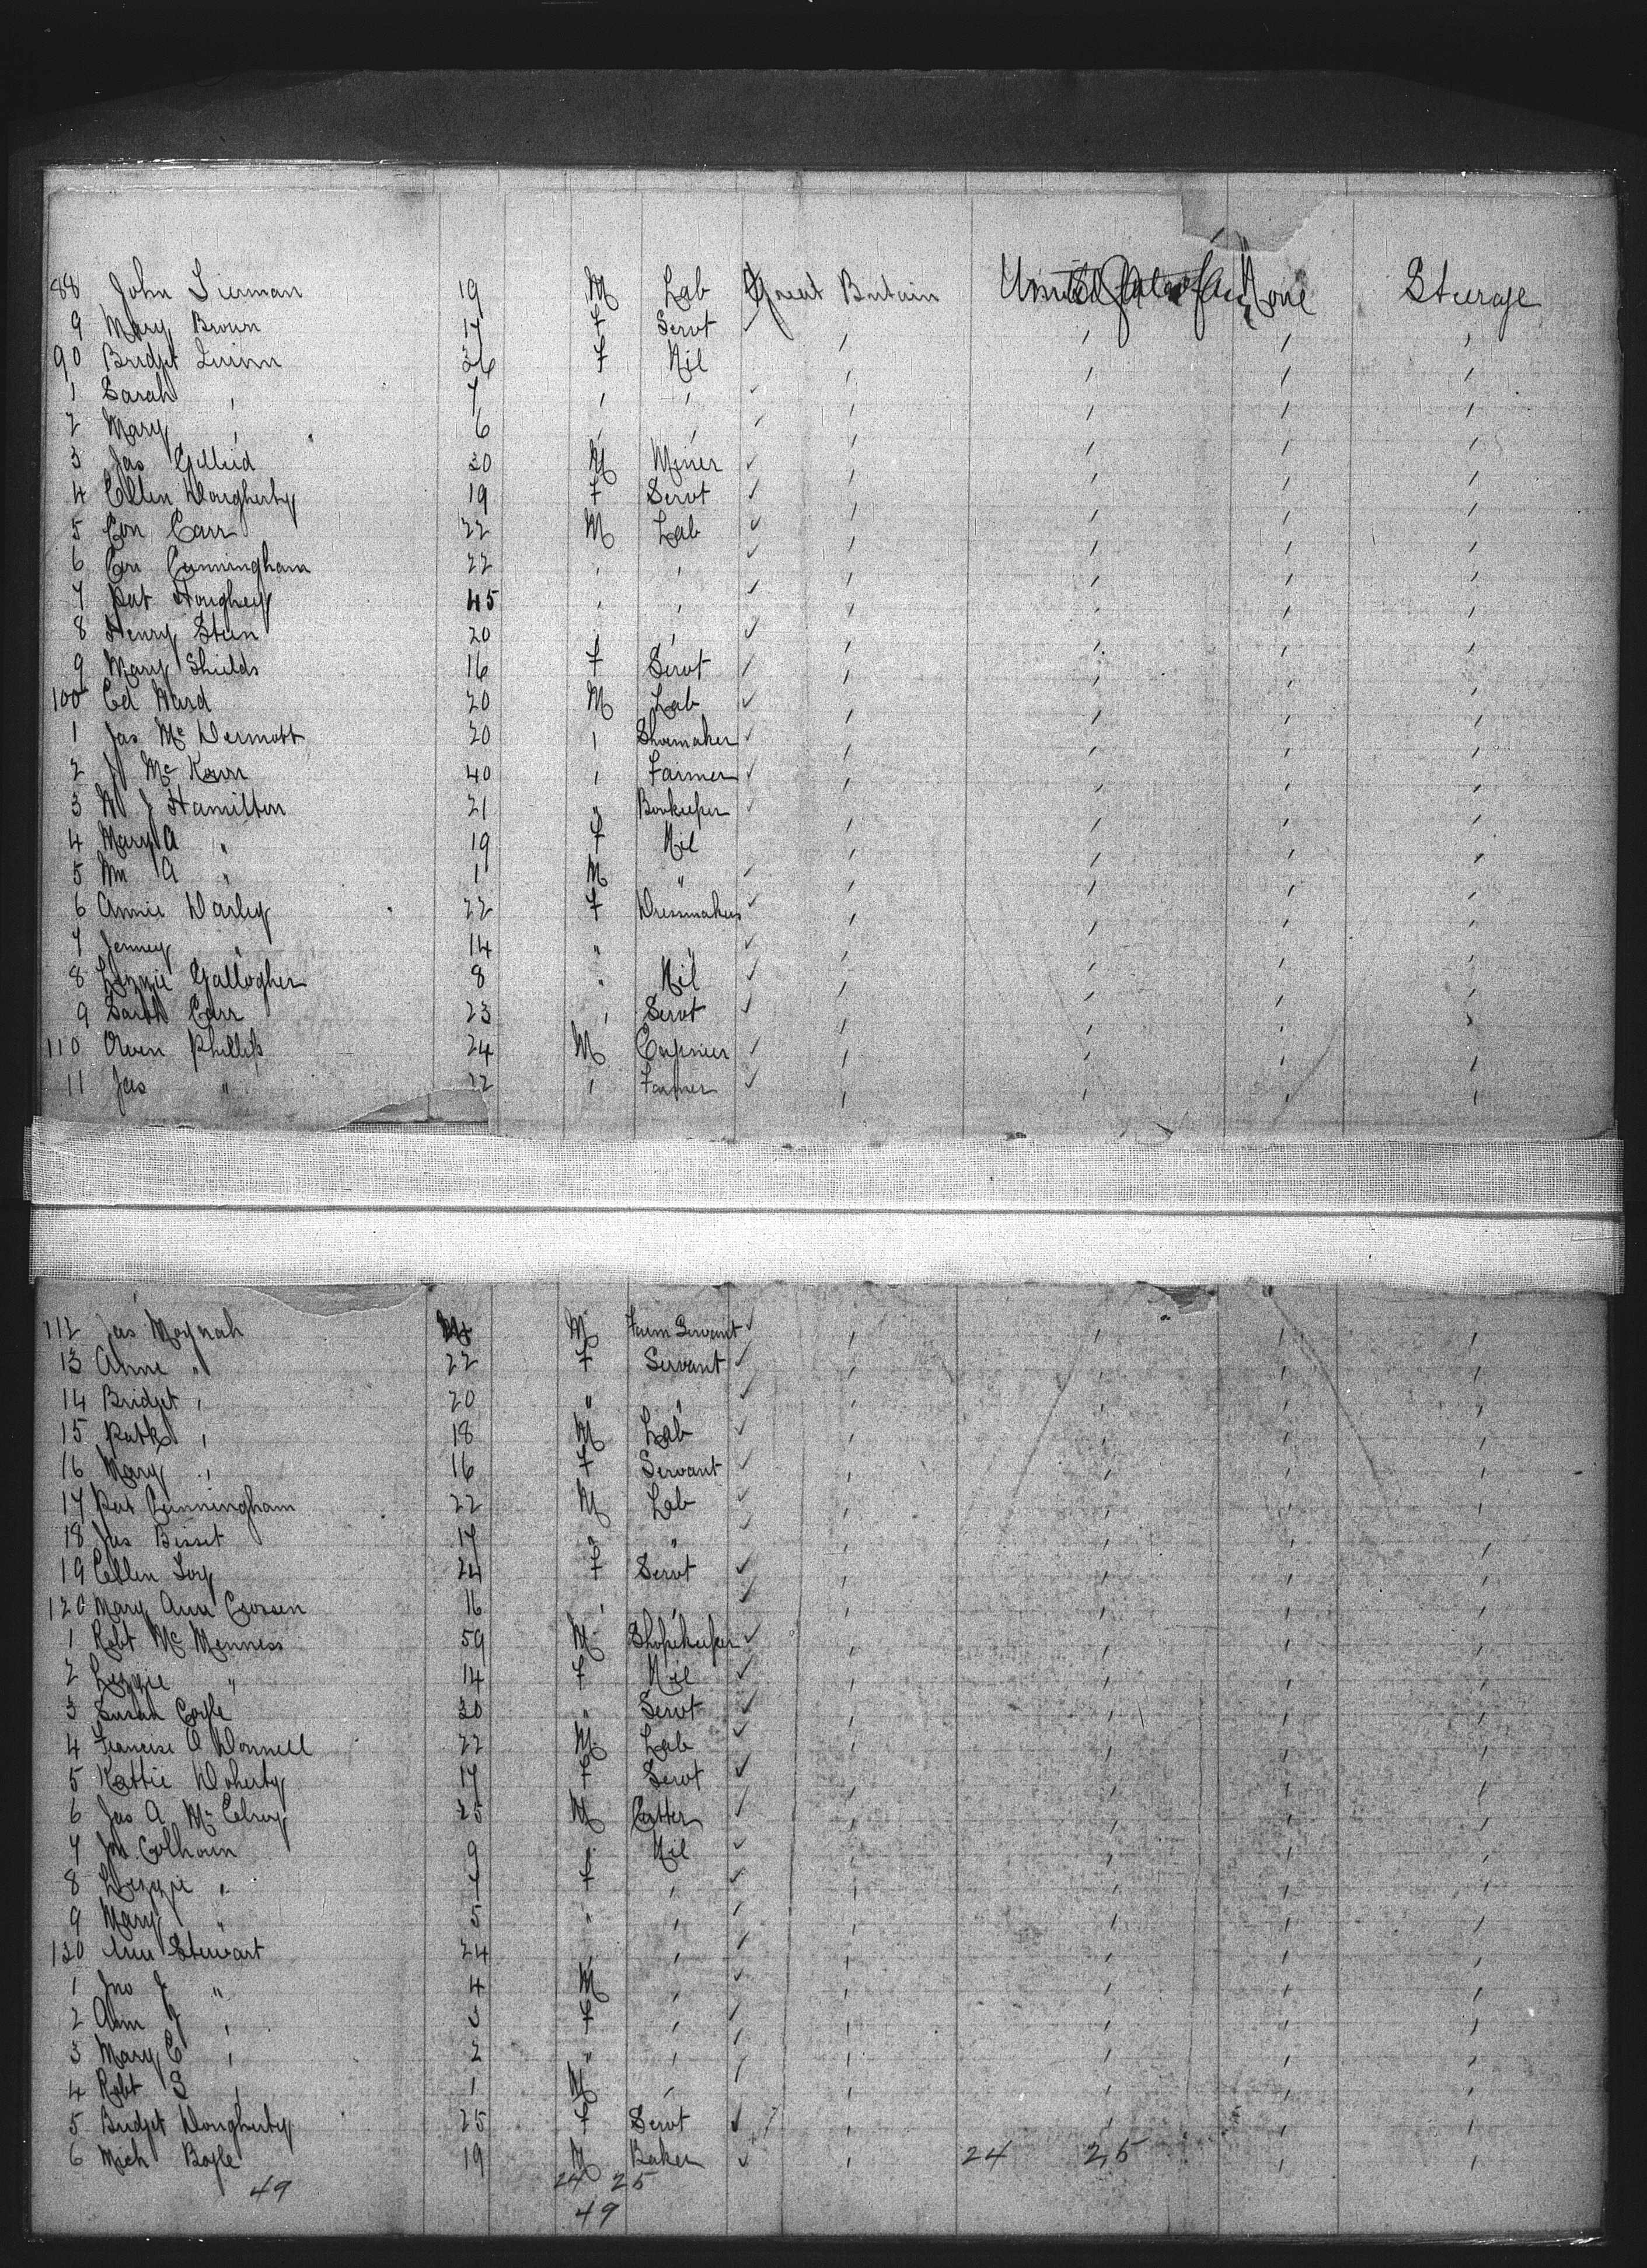 88 John Tierman 19 M Lab Great Britain United States None Steerage
9 Mary Brown 17 F Servt ✓ ′ ′ ′ ′
90 Bridget Quinn 36 F Nil ′ ′ ′ ′
1 Sarah ′ 7 ′ ′ ✓ ′ ′ ′ ′
2 Mary ′ 6 ′ ′ ✓ ′ ′ ′ ′
3 Jas 30 M Miner ✓ ′ ′ ′ ′
4 Ellen Dougherty 19 F Servt ✓ ′ ′ ′ ′
5 Con Carr 22 M Lab ✓ ′ ′ ′ ′
6 Con Cunningham 22 ′ ′ ✓ ′ ′ ′ ′
7 Pat Haughey 45 ′ ′ ✓ ′ ′ ′ ′
8 Henry Steen 20 ′ ′ ✓ ′ ′ ′ ′
9 Mary Shields 16 F Servt ✓ ′ ′ ′ ′
100 Ed Ward 20 M Lab ✓ ′ ′ ′ ′
1 Jas McDermott 20 ′ Shoemaker ✓ ′ ′ ′ ′
2 J 40 ′ Farmer ✓ ′ ′ ′ ′
3 W J Hamilton 21 " Bookeeper ✓ ′ ′ ′ ′
4 Mary A " 19 F Nil ✓ ′ ′ ′ ′
5 Wm A " 1 M " ✓ ′ ′ ′ ′
6 Annie Darley 22 F Dressmakers ✓ ′ ′ ′ ′
7 Jenney " 14 " ′ ✓ ′ ′ ′ ′
8 Lizzie Gallogher 8 " Nil ✓ ′ ′ ′ ′
9 Sarah Carr 23 ′ Servt ✓ ′ ′ ′ ′
110 Owen Phillips 24 M ✓ ′ ′ ′ ′
11 Jas " 22 ′ Farmer ✓ ′ ′ ′ ′
112 Jas Moynah M Farm Servant ✓ ′ ′ ′ ′
13 Anne " 22 F Servant ✓ ′ ′ ′ ′
14 Bridget ′ 20 " ′ ✓ ′ ′ ′ ′
15 Patk ′ 18 M Lab ✓ ′ ′ ′ ′
16 Mary ′ 16 F Servant ✓ ′ ′ ′ ′
17 Pat Cunningham 22 M Lab ✓ ′ ′ ′ ′
18 Jas Bisset 17 " " ✓ ′ ′ ′ ′
19 Ellen 24 F Servt ✓ ′ ′ ′ ′
120 Mary Ann Crossen 16 ′ ′ ✓ ′ ′ ′ ′
1 Robt McMenness 59 M Shopekeeper ✓ ′ ′ ′ ′
2 Lizzie " 14 F Nil ✓ ′ ′ ′ ′
3 Susan Coyle 30 " Servt ✓ ′ ′ ′ ′
4 Francise O Donnell 22 M Lab ✓ ′ ′ ′ ′
5 Kattie Doherty 17 F Servt ✓ ′ ′ ′ ′
6 Jas A McElroy 25 M Cutter ✓ ′ ′ ′ ′
7 Colhoun 9 " Nil ✓ ′ ′ ′ ′
8 Lizzie " 7 F ′ ✓ ′ ′ ′ ′
9 Mary " 5 " ′ ✓ ′ ′ ′ ′
130 Ann Stewart 24 ′ ′ ✓ ′ ′ ′ ′
1 Jno J " 4 M ′ ✓ ′ ′ ′ ′
2 Ann J ′ 3 F ′ ✓ ′ ′ ′ ′
3 Mary C ′ 2 " ′ ✓ ′ ′ ′ ′
4 Robt S ′ 1 M ′ ✓ ′ ′ ′ ′
5 Bridget Dougherty 25 F Servt ✓ ′ ′ ′ ′
6 Mich Boyle 19 M Baker ✓ ′ 24 25 ′ ′
49 24 25
49